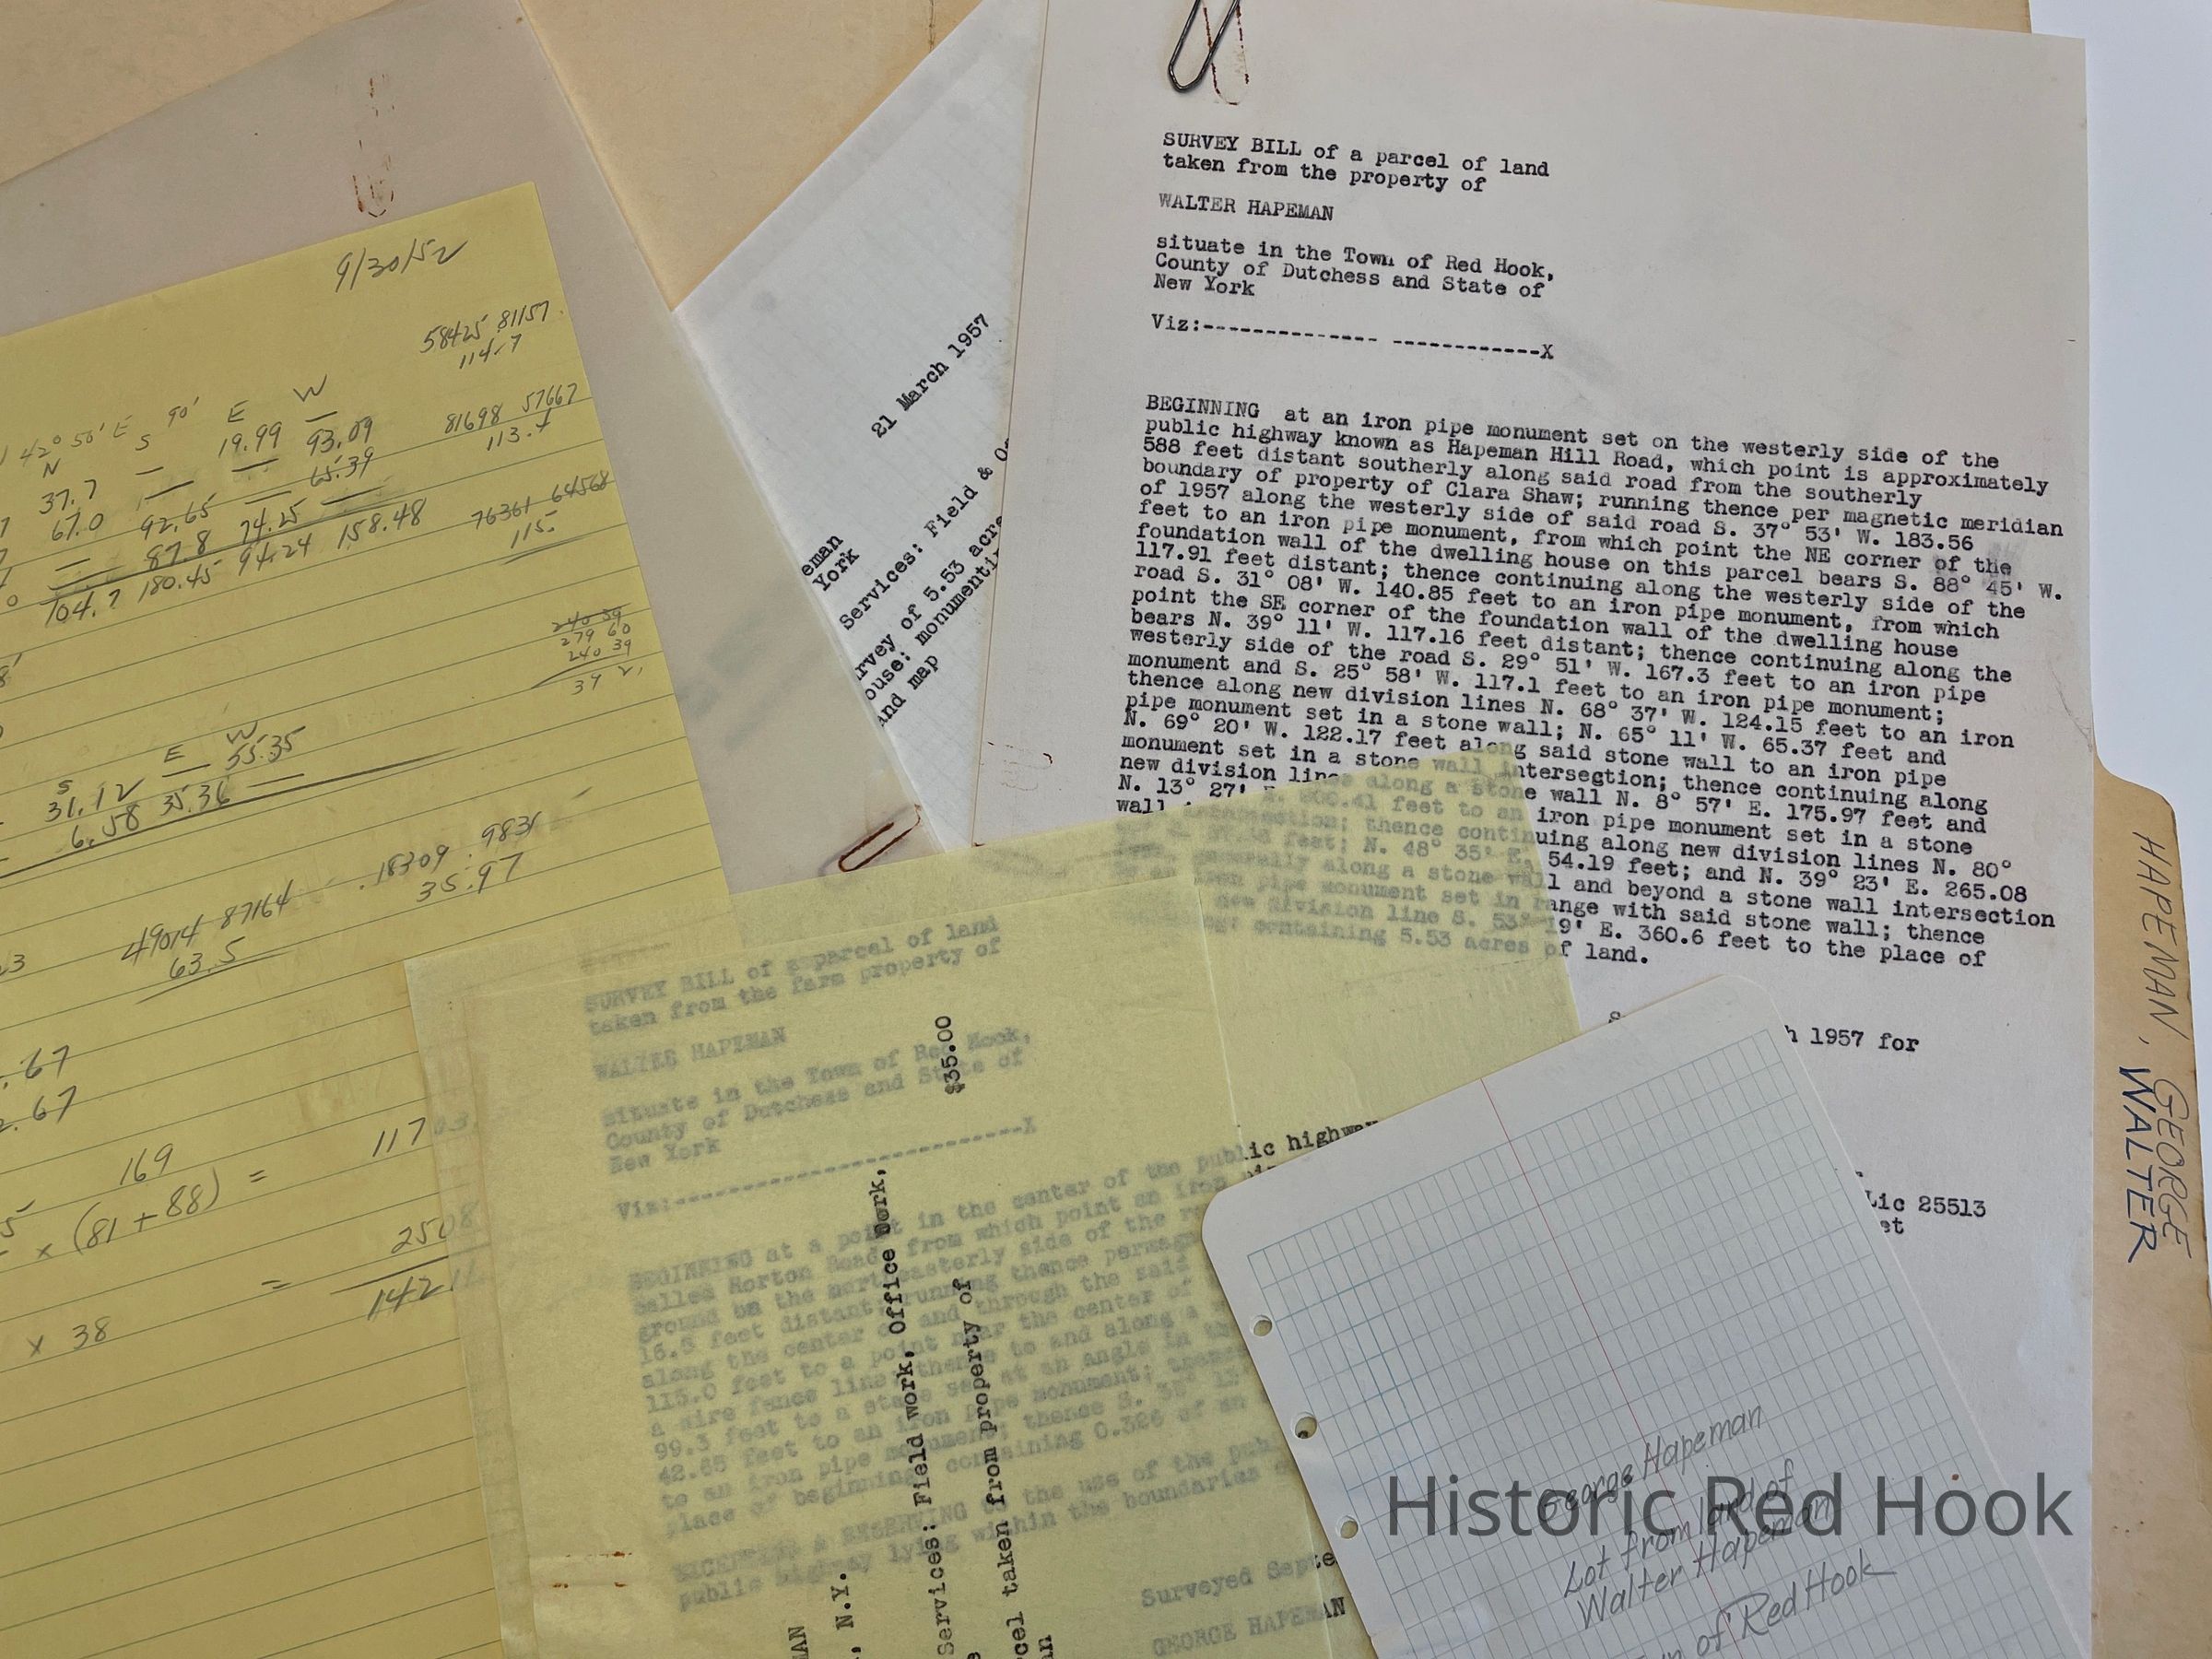 9/30/52
58425 81157
114.7
42° 50' E S 90' E W
N
37.7 — 19.99 93.09
81698 57667
113.4
67.0 — — 65.39
— 92.65 74.25 —
— 87.8
104.7 180.45 94.24 158.48
76361 64568
115.
240 39
279 60
240 39
39 21
S E W
31.12 — 55.35
6.58 35.36 —
18309 9831
35.97
49014 87164
63.5
.67
2.67
169
x (81+88) = 117
= 2508
x 38
142
21 March 1957
eman
York
Services: Field & O
rvey of 5.53 acre
ouse: monumenti
and map
SURVEY BILL of a parcel of land
taken from the property of
WALTER HAPEMAN
situate in the Town of Red Hook,
County of Dutchess and State of
New York
Viz:--------------- ------------X
BEGINNING at an iron pipe monument set on the westerly side of the
public highway known as Hapeman Hill Road, which point is approximately
588 feet distant southerly along said road from the southerly
boundary of property of Clara Shaw; running thence per magnetic meridian
of 1957 along the westerly side of said road S. 37° 53' W. 183.56
feet to an iron pipe monument, from which point the NE corner of the
foundation wall of the dwelling house on this parcel bears S. 88° 45' W.
117.91 feet distant; thence continuing along the westerly side of the
road S. 31° 08' W. 140.85 feet to an iron pipe monument, from which
point the SE corner of the foundation wall of the dwelling house
bears N. 39° 11' W. 117.16 feet distant; thence continuing along the
westerly side of the road S. 29° 51' W. 167.3 feet to an iron pipe
monument and S. 25° 58' W. 117.1 feet to an iron pipe monument;
thence along new division lines N. 68° 37' W. 124.15 feet to an iron
pipe monument set in a stone wall; N. 65° 11' W. 65.37 feet and
N. 69° 20' W. 122.17 feet along said stone wall to an iron pipe
monument set in a stone wall intersection; thence continuing along
new division lines along a stone wall N. 8° 57' E. 175.97 feet and
N. 13° 27' E. feet to an iron pipe monument set in a stone
wall intersection; thence continuing along new division lines N. 80°
feet; N. 48° 35' E. 54.19 feet; and N. 39° 23' E. 265.08
generally along a stone wall and beyond a stone wall intersection
to an iron pipe monument set in range with said stone wall; thence
new division line S. 53° 19' E. 360.6 feet to the place of
containing 5.53 acres of land.
h 1957 for
Lic 25513
et
SURVEY BILL of a parcel of land
taken from the farm property of
WALTER HAPEMAN
situate in the Town of Red Hook,
County of Dutchess and State of
New York
Viz:---------------------------X
BEGINNING at a point in the center of the public highway
called Norton Road, from which point an iron
ground on the northeasterly side of the
16.5 feet distant; running thence per
along the center of and through the said
115.0 feet to a point near the center of
a wire fence line; thence to and along a
99.3 feet to a stake set at an angle in
42.65 feet to an iron pipe monument;
to an iron pipe monument; thence S.
place of beginning; containing 0.326 of an
EXCEPTING & RESERVING the use of the
public highway lying within the boundaries
Surveyed Septe
GEORGE HAPEMAN
$35.00
MAN
, N.Y.
Services: Field work, Office Work,
rcel taken from property of
an
George Hapeman
Lot from land of
Walter Hapeman
of Red Hook
HAPEMAN, GEORGE
WALTER
Historic Red Hook